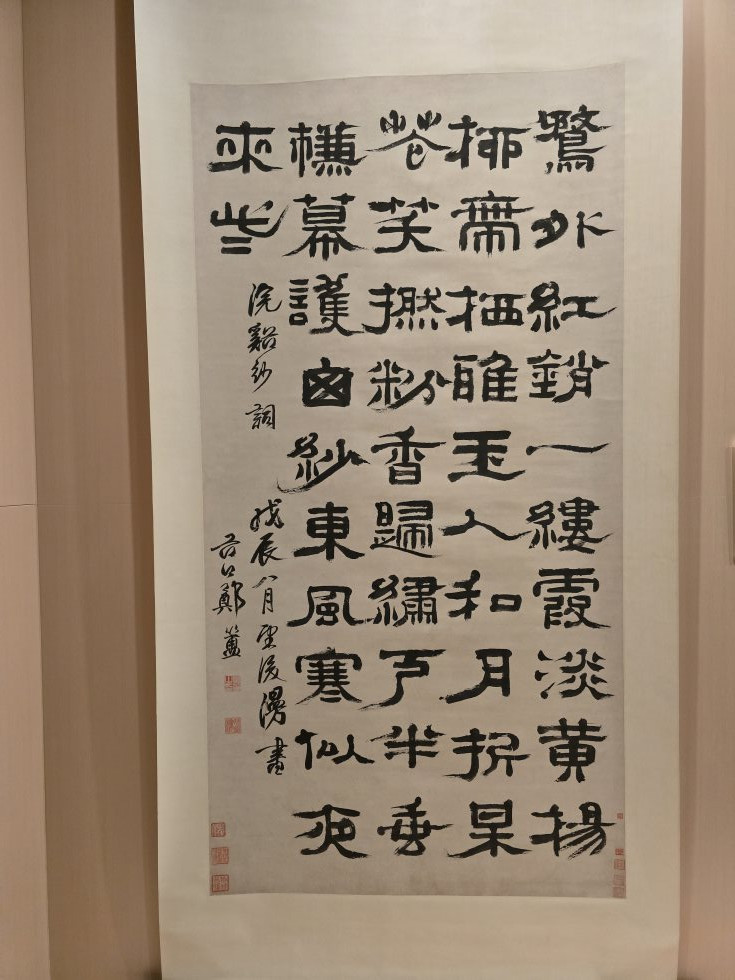 鶩外紅銷一縷霞淡黃楊
桺帶栖雅玉人和月折杲
花笑撚粉香歸繡戶半垂
槏幕護囪紗東風寒似夜
來些
浣谿紗詞 戊辰八月望後漫書
谷口鄭簠